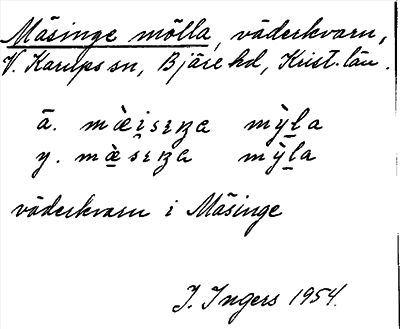 Mäsinge mölla, väderkvarn,
V. Karups sn, Bjäre hd, Krist. län.
ä. mæ̀i̯sɪŋa mỳl̲a
y. mæ̲̀sɪŋa mỳl̲a
väderkvarn i Mäsinge
I. Ingers 1954.